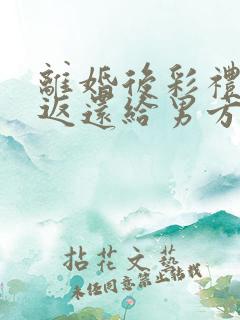 離婚後彩禮
返還給男方
拈花文藝
未經同意禁止轉載